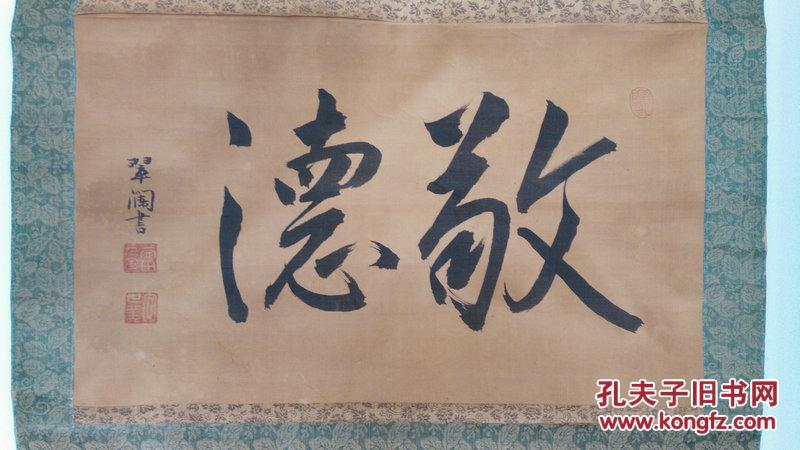 敬德
翠瀾書
孔夫子旧书网
www.kongfz.com